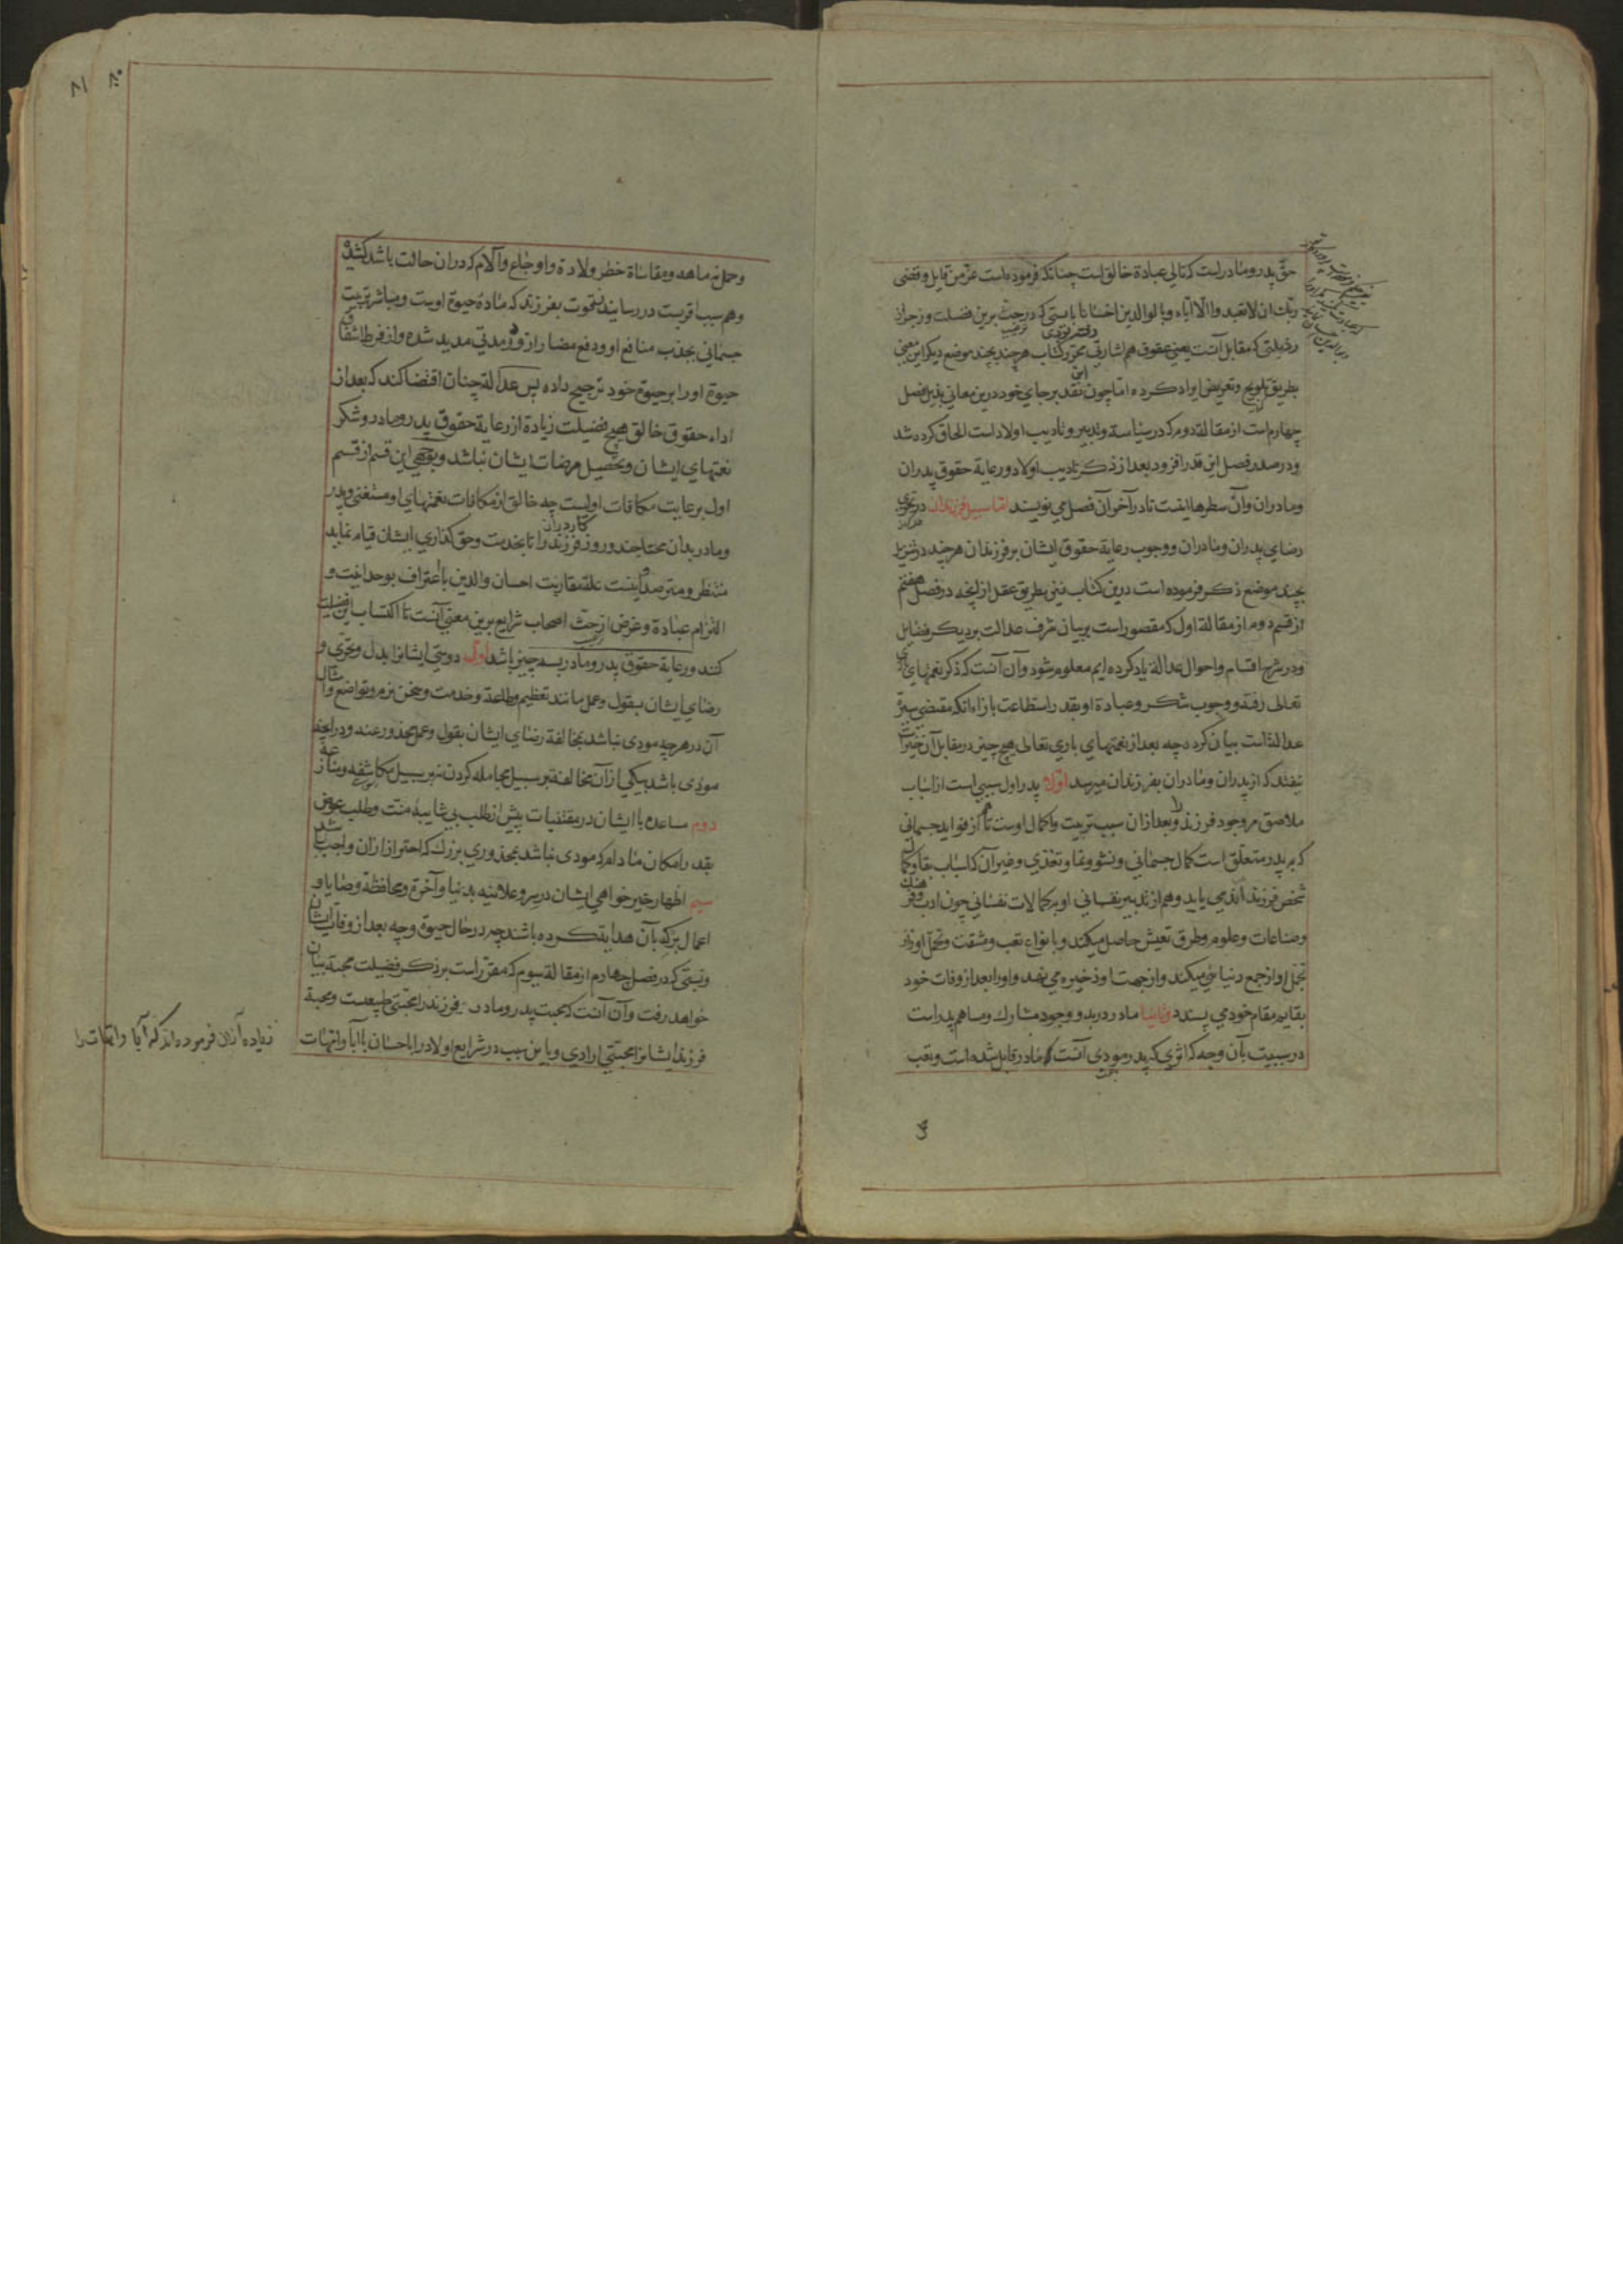 حق پدر و مادر است که تالی عبادة خالق است چنانکه فرموده است عز من قایل و قضی
ربّک ان لا تعبدوا الّا ایّاه و بالوالدین احسانا بایستی که در حثّ برین فضیلت و زجر از
رذیلتی که مقابل آنست یعنی عقوق هم اشارتی محرر کتاب هر چند بچند موضع دیگر این معنی
بطریق تلویح و تعریض ایراد کرده امّا چون نقد بر جای خود درین معانی بذیل فصل
چهارم است از مقالة دوم که در سیاسة و تدبیر و تادیب اولاد است الحاق کرده شد
و در صدر فصل این قدر افزود بعد از ذکر تادیب اولاد و رعایة حقوق پدران
و مادران و آن سطرها اینست تا در آخر آن فصل می نویسند امّا سبیل فرزندان در تحری
رضای پدران و مادران و وجوب رعایة حقوق ایشان بر فرزندان هر چند در تنزیل
بچند موضع ذکر فرموده است درین کتاب نیز بطریق عقل از انچه در فصل هفتم
از قسم دوم از مقالة اول که مقصور است بر بیان شرف عدالت بر دیگر فضایل
و در شرح اقسام و احوال عدالة یاد کرده ایم معلوم شود و آن آنست که ذکر نعمتهای باری
تعالی رفته و وجوب شکر و عبادة او بقدر استطاعت بازاء آنکه مقتضی سیرة
عدالتست بیان کرد چه بعد از نعمتهای باری تعالی هیچ چیز در مقابل آن خیرات
نیفتد که از پدران و مادران بفرزندان میرسد اوّلا پدر اول سببی است از اسباب
ملاصق مر وجود فرزند را و بعد از ان سبب تربیت و اکمال اوست تا هم از فواید جسمانی
که بر پدر متعلق است کمال جسمانی و نشو و نما و تغذی و غیر آن که اسباب بقا و کمال
شخص فرزند اند می یابد و هم از تدبیر نفسانی او بر کمالات نفسانی چون ادب و فرهنگ
و صناعات و علوم و طرق تعیش حاصل میکند و بانواع تعب و مشقت و تحمل اوزار
تجمل او از جمع دنیائی میکند و از جهت او ذخیره می نهد و او را بعد از وفات خود
بقایم مقام خودی پسندد و ثانیا مادر در بدو وجود مشارک و مساهم پدر است
در سببیت بآن وجه که اثری که پدر مودی آنست مادر قابل شده است و تعب
و حمل نه ماهه و مقاساة خطر ولادة و اوجاع و آلام که در ان حالت باشد کشیده
و هم سبب اقربست در رسانیدن قوت بفرزند که مادهٔ حیوة اوست و مباشر تربیت
جسمانی بجذب منافع او و دفع مضار از و مدتی مدید شده و از فرط اشفاق
حیوة او را بر حیوة خود ترجیح داده پس عدالة چنان اقتضا کند که بعد از
اداء حقوق خالق هیچ فضیلت زیادة از رعایة حقوق پدر و مادر و شکر
نعمتهای ایشان و تحصیل مرضات ایشان نباشد و بوجهی این قسم از قسم
اول برعایت مکافات اولیست چه خالق از مکافات نعمتهای او مستغنی و پدر
و مادر بدان محتاجند و روزگار در ان فرزند را تا بخدمت و حق گذاری ایشان قیام نماید
منتظر و مترصد و اینست علة مقارنت احسان والدین با اعتراف بوحدانیت و
التزام عبادة و غرض از حثّ اصحاب شرایع برین معنی آنست تا اکتساب این فضیلت
کنند و رعایة حقوق پدر و مادر بسه چیز باشد اوّل دوستی ایشانرا بدل و تحرّی و
رضای ایشان بقول و عمل مانند تعظیم و طاعة و خدمت و سخن نرم و تواضع و امثال
آن در هر چه مودی نباشد بمخالفة رضای ایشان بقول و عمل محذور عنه و در انچه
مودی باشد بیکی از آن مخالفت بر سبیل مجامله کردن نه بر سبیل مکاشفه و منازعة
دوم مساعده با ایشان در مقتنیات پیش از طلب بی شایبهٔ منت و طلب عوض
بقدر امکان مادام که مودی نباشد بمحذوری بزرگ که احتراز ازان واجب باشد
سیم اظهار خیرخواهی ایشان در سر و علانیه بدنیا و آخرة و محافظة وصایا و
اعمال بر که بآن هدایة کرده باشند چه در حال حیوة و چه بعد از وفات ایشان
و نسبتی که در فصل چهارم از مقالة سیوم که مقرّر است بر ذکر فضیلت محبة بیان
خواهد رفت و آن آنست که محبت پدر و مادر فرزند را محبتی طبیعیست و محبة
فرزند ایشانرا محبّتی ارادی و باین سبب در شرایع اولاد را باحسان با آبا و امّهات
زیاده ازان فرموده اند که آبا و امهات را